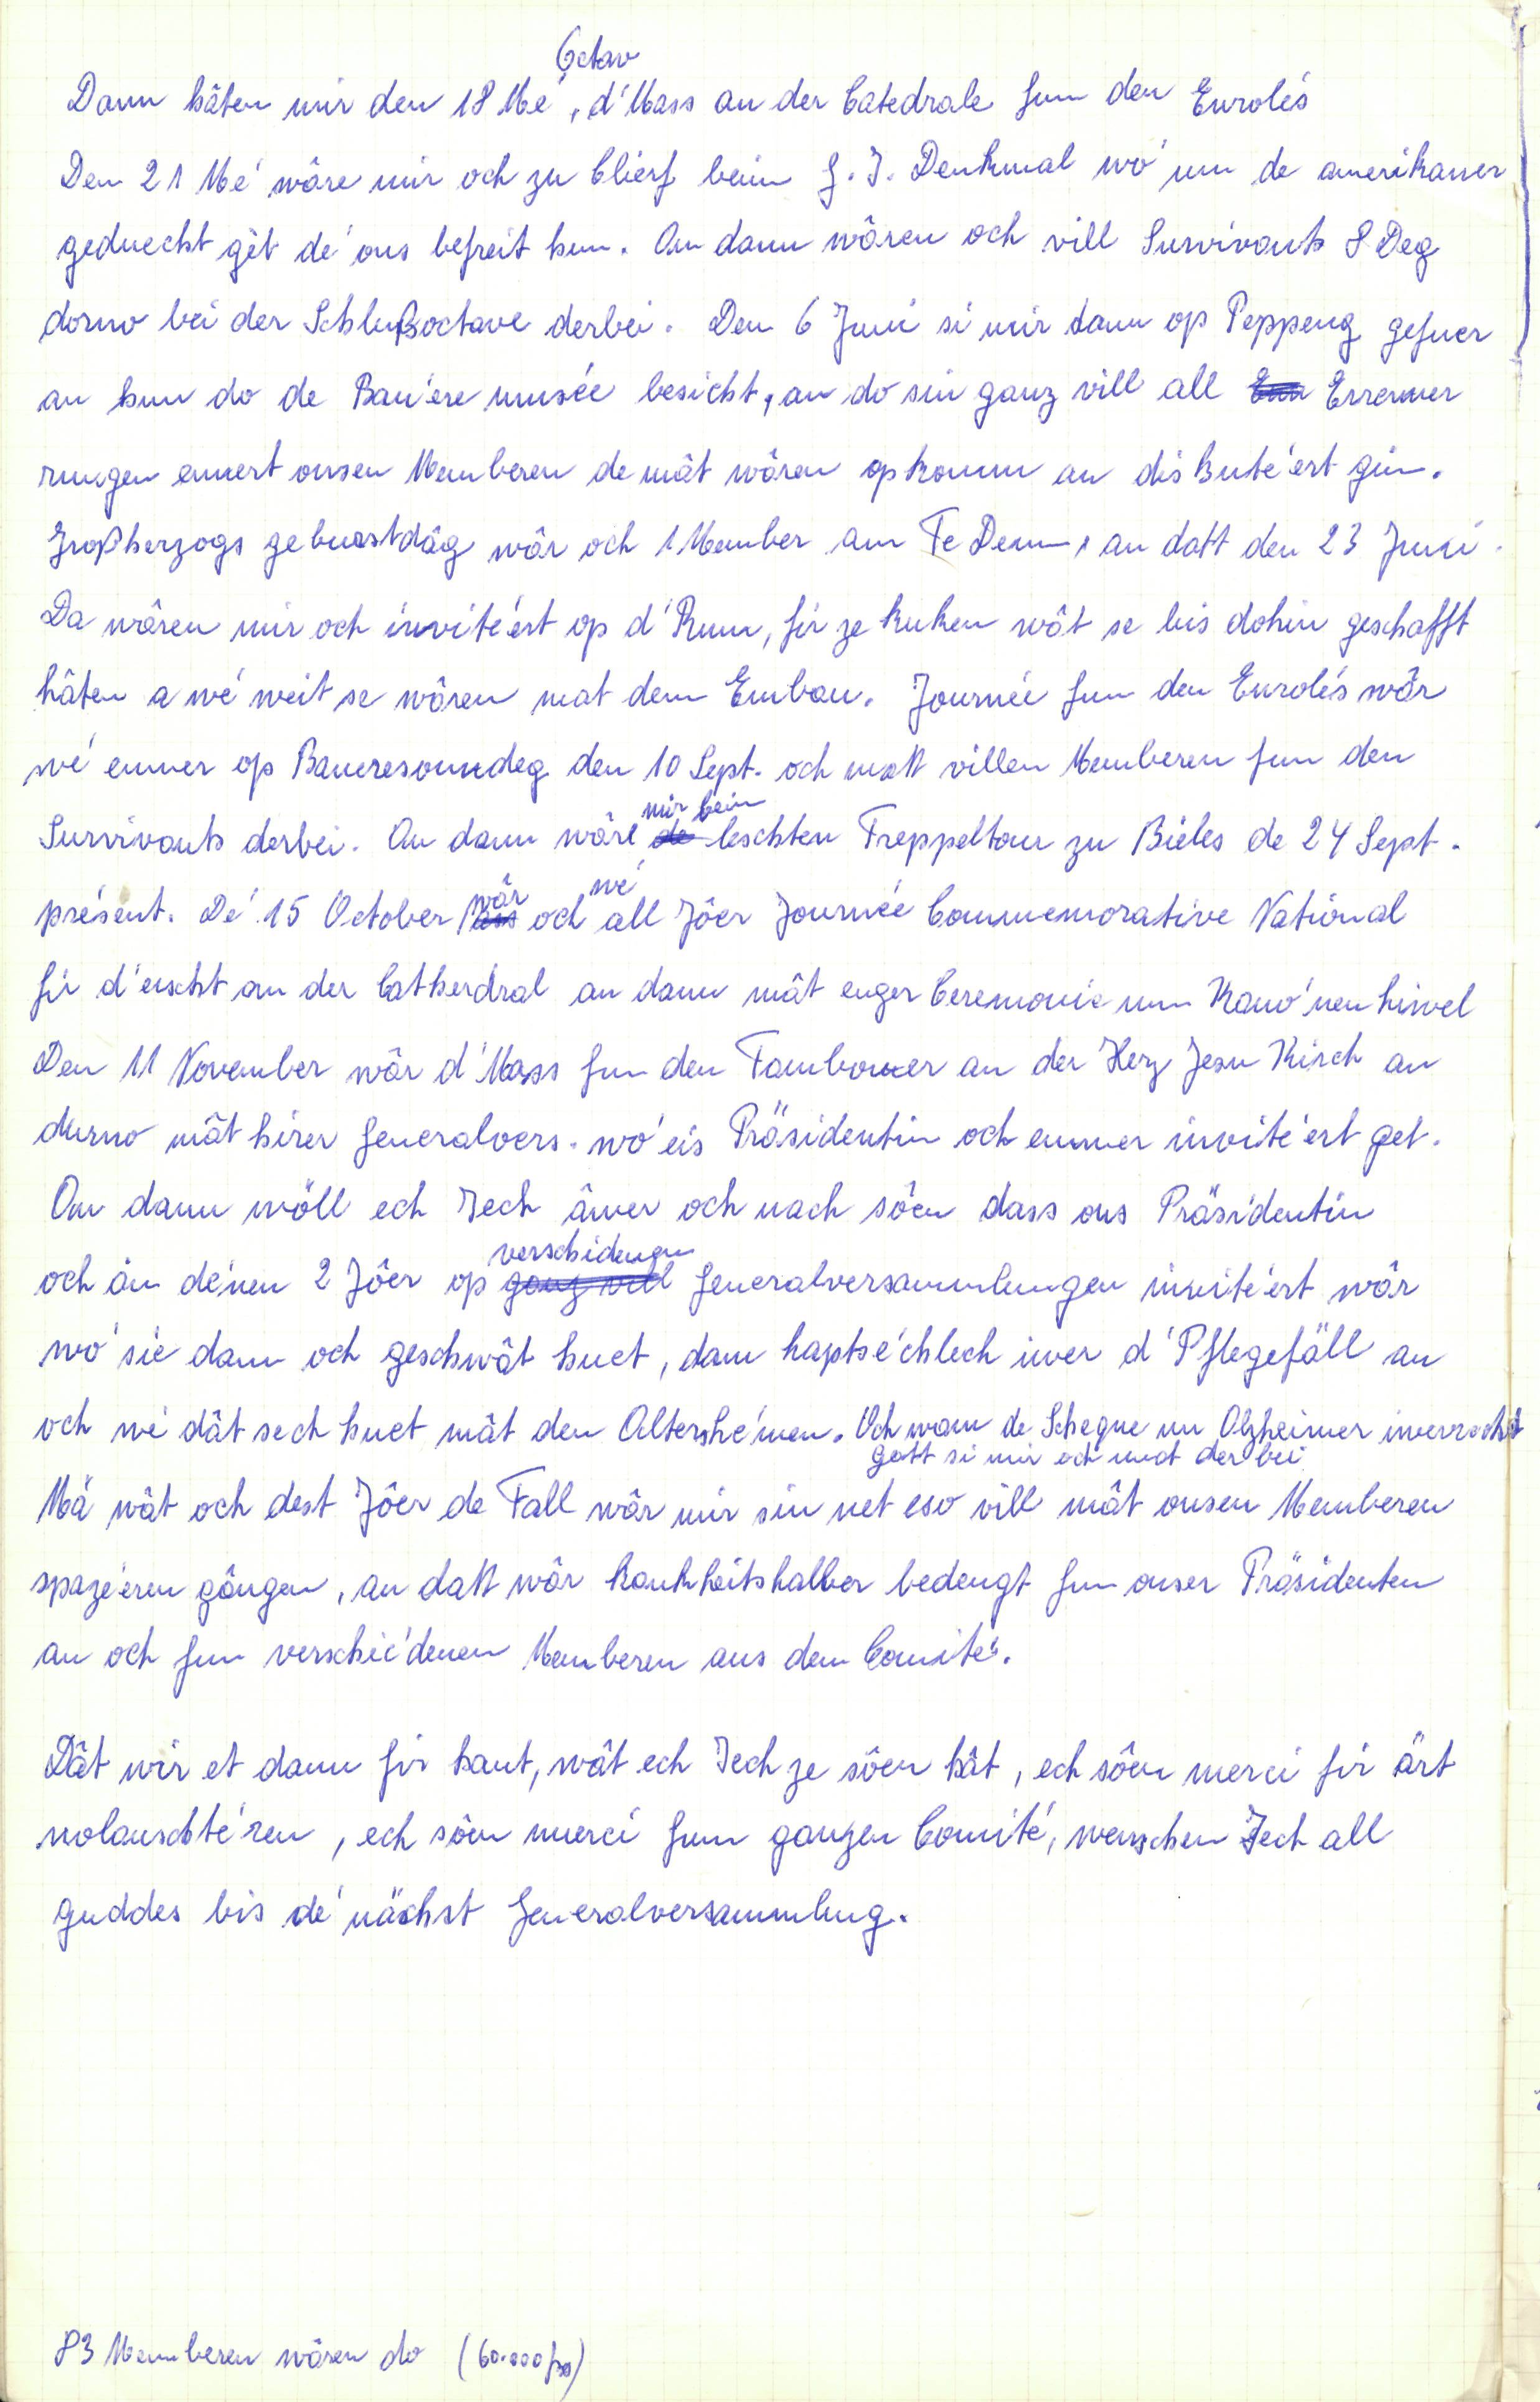 Octav
Dann hâten mir den 18 Mé, d'Mass an der Catedrale fun den Eurolés
Den 21 Mé wâre mir och zu Clierf beim G.I. Denkmal wó un de amerikaner
geduecht gët dé ons befreit hun. An dann wâren och vill Survivants 8 Deg
dorno bei der Schlußoctave derbei. Den 6 Juni si mir dann op Peppeng gefuer
an hun do de Bauére musée besicht, an do sin ganz vill all Erremer
rungen ënnert onsen Memberen de mât wâren opkomm an diskutéert gin.
Großherzogs geburstdâg wâr och 1 Member am Te Deum, an datt den 23 Juni.
Da wâren mir och invitéert op d'Rum, fir ze kuken wât se bis dohin geschafft
hâten a wé weit se wâren mat dem Embau. Journée fun den Eurolés wâr
wé emmer op Baueresonndeg den 10 Sept. och matt villen Memberen fun den
mir beim
Survivants derbei. An dann wâre de leschten Treppeltour zu Bieles de 24 Sept.
wâr wé
présent. Dé 15 October ass och all Jôer Journée Commemorative National
fir d'eischt an der Catherdral an dann mât enger Ceremonie um Kanó'nen hiwel
Den 11 November wâr d'Mass fun den Tambouer an der Herz Jesu Kirch an
durno mât hirer Generalvers. wó eis Präsidentin och emmer invitéert get.
An dann wöll ech Iech âwer och nach sôen dass ons Präsidentin
verschidenen
och ân dénen 2 Jôer op ganz vill Generalversammlungen invitéert wâr
wó sie dann och geschwât huet, dann haptséchlech iwer d'Pflegefäll an
och wé dât sech huet mât den Altershémen. Och wann de Scheque un Alzheimer iwerrecht
gett si mir och mat derbei
Mä wât och dest Jôer de Fall wâr mir sin net eso vill mât onsen Memberen
spazéeren gângen, an datt wâr krankheitshalber bedengt fun onser Präsidenten
an och fun verschiédenen Memberen aus dem Comité.
Dât wir et dann fir haut, wât ech Iech ze sôen hât, ech sôen merci fir ärt
nolauschtéren, ech sôen merci fum ganzen Comité, wenschen Iech all
guddes bis dé nächst Generalversammlung.
83 Memberen wâren do (60.000 frs)